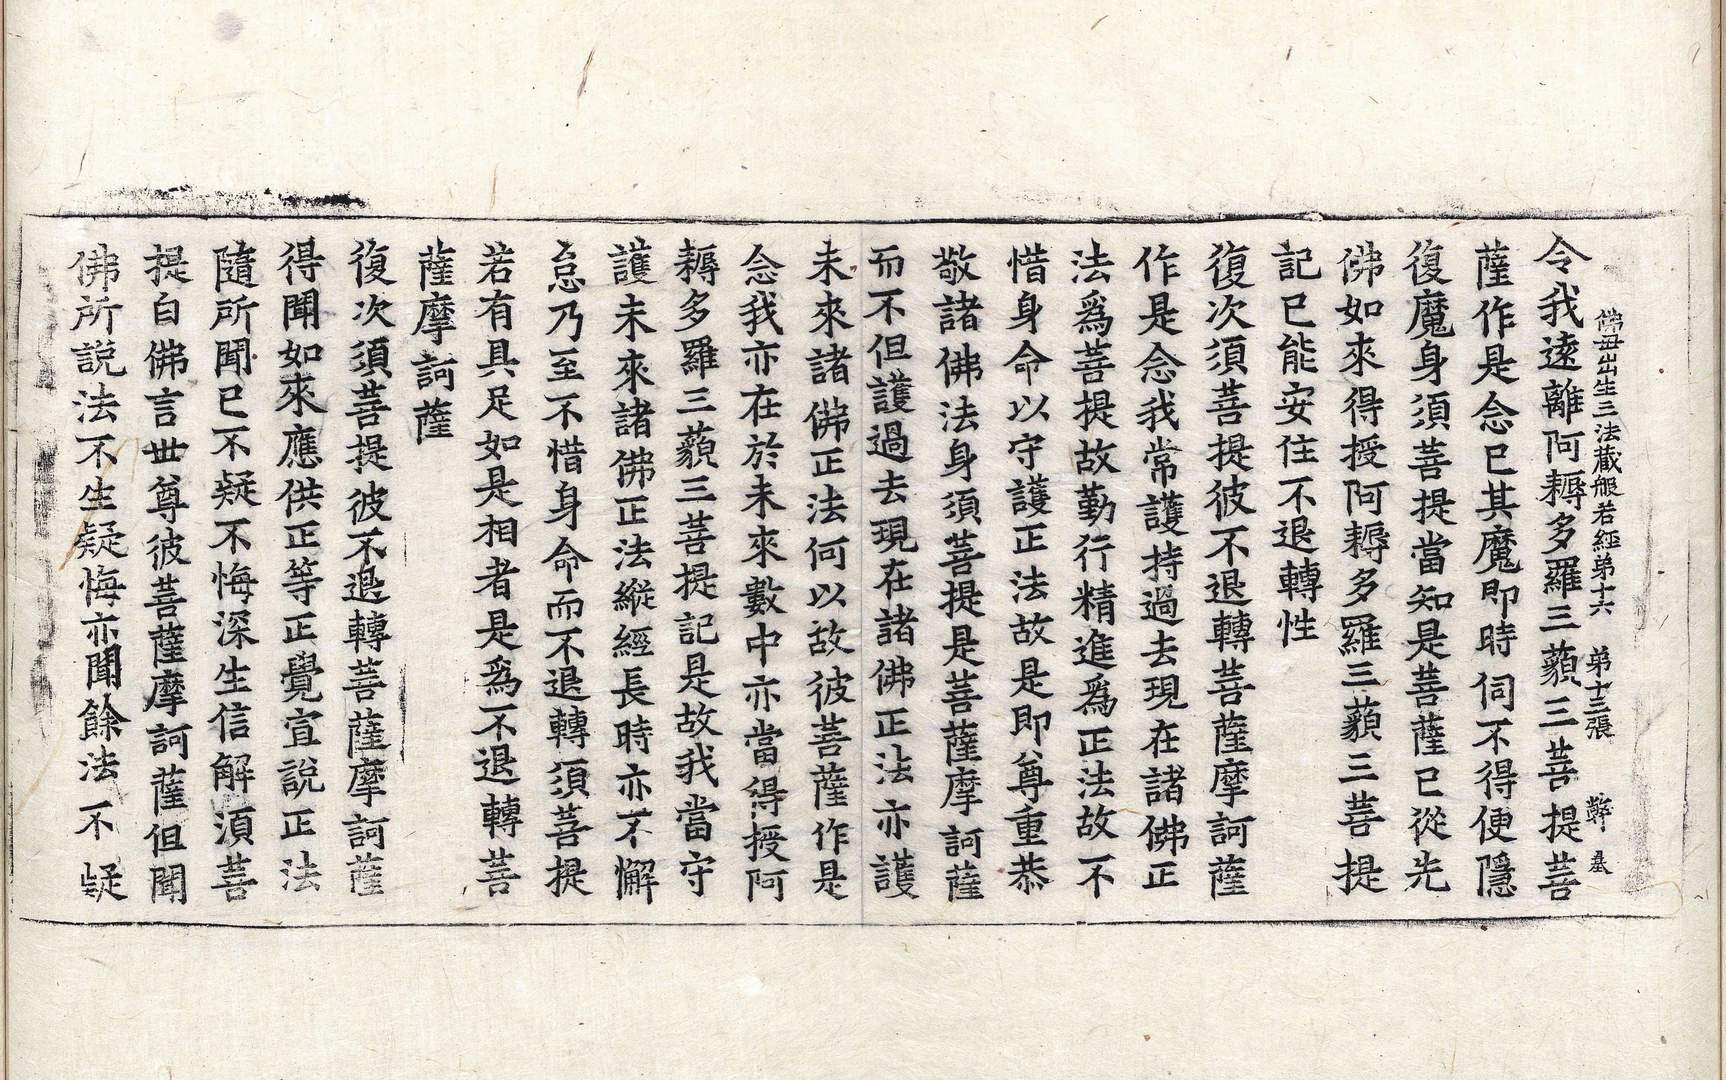 佛母出生三法藏般若經第十六　第十三張　弊　基
令我遠離阿耨多羅三藐三菩提菩
薩作是念已其魔即時伺不得便隱
復魔身須菩提當知是菩薩已從先
佛如來得授阿耨多羅三藐三菩提
記已能安住不退轉性
復次須菩提彼不退轉菩薩摩訶薩
作是念我常護持過去現在諸佛正
法爲菩提故勤行精進爲正法故不
惜身命以守護正法故是即尊重恭
敬諸佛法身須菩提是菩薩摩訶薩
而不但護過去現在諸佛正法亦護
未來諸佛正法何以故彼菩薩作是
念我亦在於未來數中亦當得授阿
耨多羅三藐三菩提記是故我當守
護未來諸佛正法縱經長時亦不懈
怠乃至不惜身命而不退轉須菩提
若有具足如是相者是爲不退轉菩
薩摩訶薩
復次須菩提彼不退轉菩薩摩訶薩
得聞如來應供正等正覺宣說正法
隨所聞已不疑不悔深生信解須菩
提白佛言世尊彼菩薩摩訶薩但聞
佛所說法不生疑悔亦聞餘法不疑